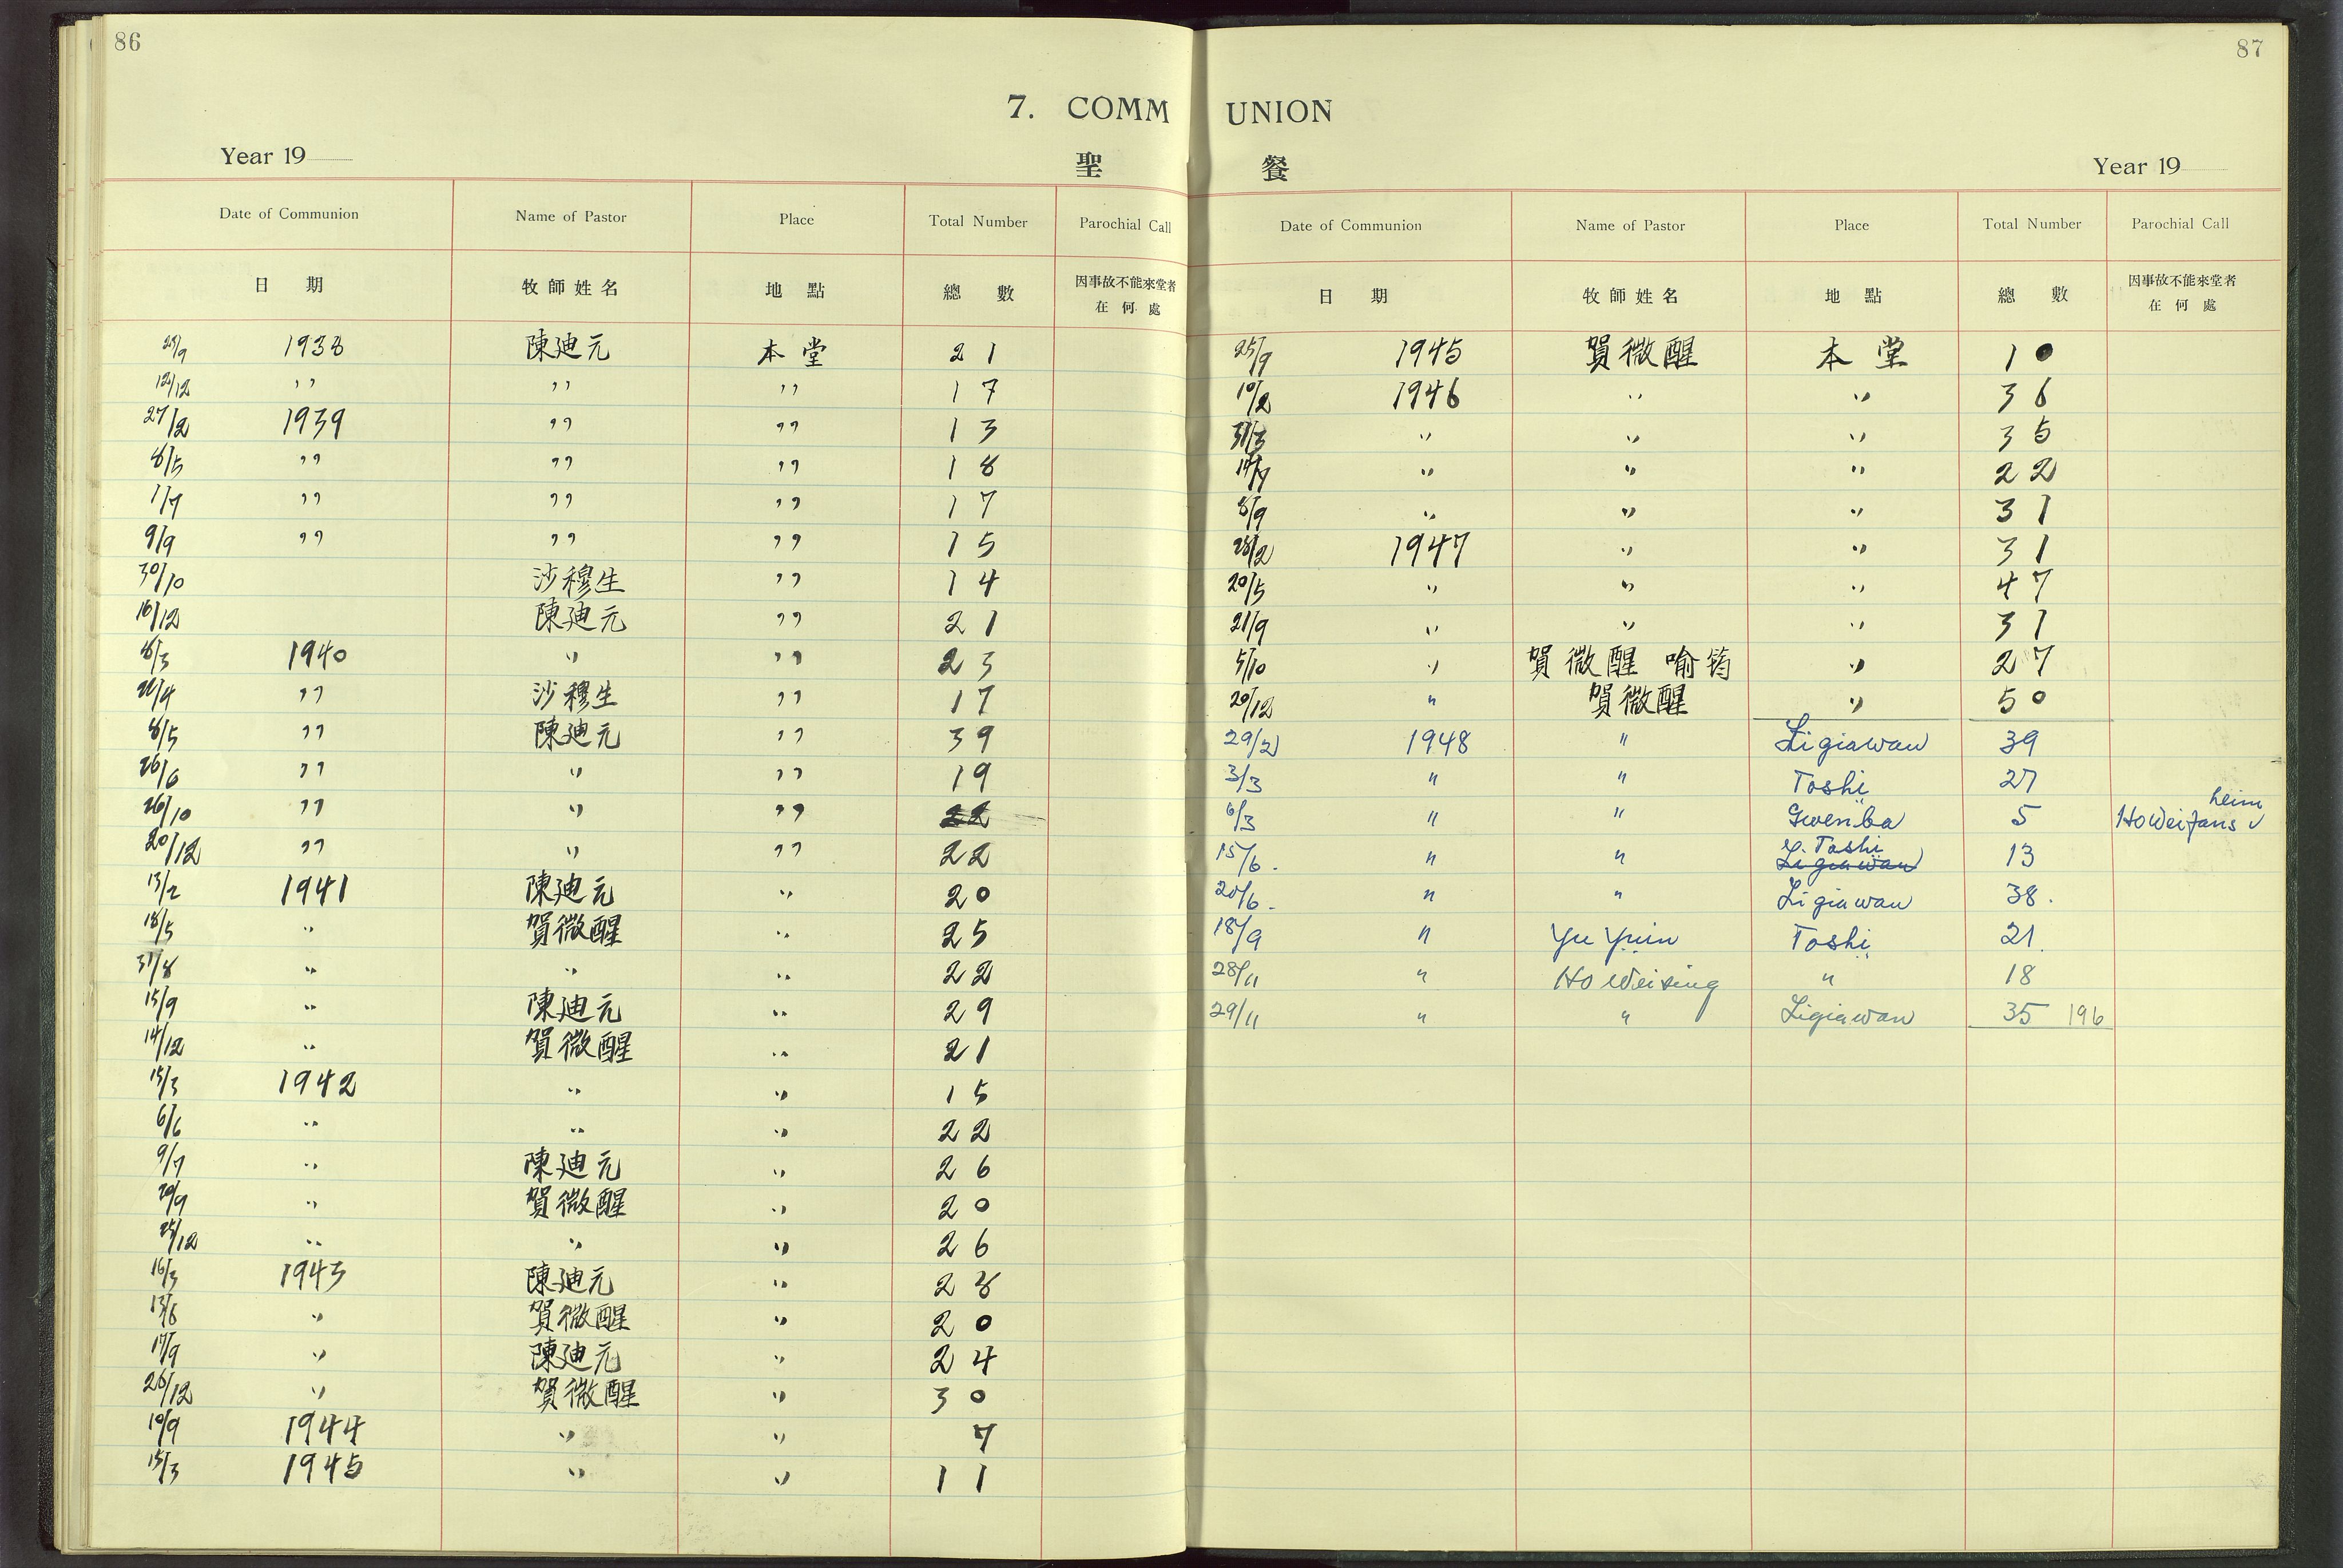 86
7. COMM
Year 19
聖
Date of Communion Name of Pastor Place Total Number Parochial Call
日 期 牧師姓名 地 點 總 數 因事故不能來堂者
在 何 處
1938 陳迪元 本堂 21
12/12 〃 〃 〃 17
27/2 1939 〃 〃 13
8/5 〃 〃 〃 18
1/7 〃 〃 〃 17
9/9 〃 〃 〃 15
30/10 沙穆生 〃 14
16/12 陳迪元 〃 21
8/3 1940 〃 〃 23
22/4 〃 沙穆生 〃 17
8/5 〃 陳迪元 〃 39
26/6 〃 〃 〃 19
26/10 〃 〃 〃 22
20/12 〃 〃 〃 22
13/2 1941 陳迪元 〃 20
18/5 〃 賀微醒 〃 25
31/8 〃 〃 〃 22
15/9 〃 陳迪元 〃 29
14/12 〃 賀微醒 〃 21
15/3 1942 〃 〃 15
6/6 〃 〃 〃 22
9/7 〃 陳迪元 〃 26
20/9 〃 賀微醒 〃 20
25/12 〃 〃 〃 26
16/3 1943 陳迪元 〃 28
13/6 〃 賀微醒 〃 20
17/9 〃 陳迪元 〃 24
26/12 〃 賀微醒 〃 30
10/9 1944 〃 〃 7
15/3 1945 〃 〃 11
87
UNION
餐
Year 19
Date of Communion Name of Pastor Place Total Number Parochial Call
日 期 牧師姓名 地 點 總 數 因事故不能來堂者
在 何 處
25/9 1945 賀微醒 本堂 10
10/2 1946 〃 〃 36
31/3 〃 〃 〃 35
14/7 〃 〃 〃 22
8/9 〃 〃 〃 31
23/2 1947 〃 〃 31
20/5 〃 〃 〃 47
21/9 〃 〃 〃 31
5/10 〃 賀微醒 喻筠 〃 27
20/12 〃 賀微醒 〃 50
29/2 1948 〃 Ligiawan 39
3/3 〃 〃 Toshi 27
6/3 〃 〃 Gwenba 5 Howeifans heim
15/6. 〃 〃 Ligiawan Toshi 13
20/6. 〃 〃 Ligiawan 38.
18/9 〃 Yu Yüin Toshi 21.
28/11 〃 Ho Weising 〃 18
29/11 〃 〃 Ligiawan 35 196